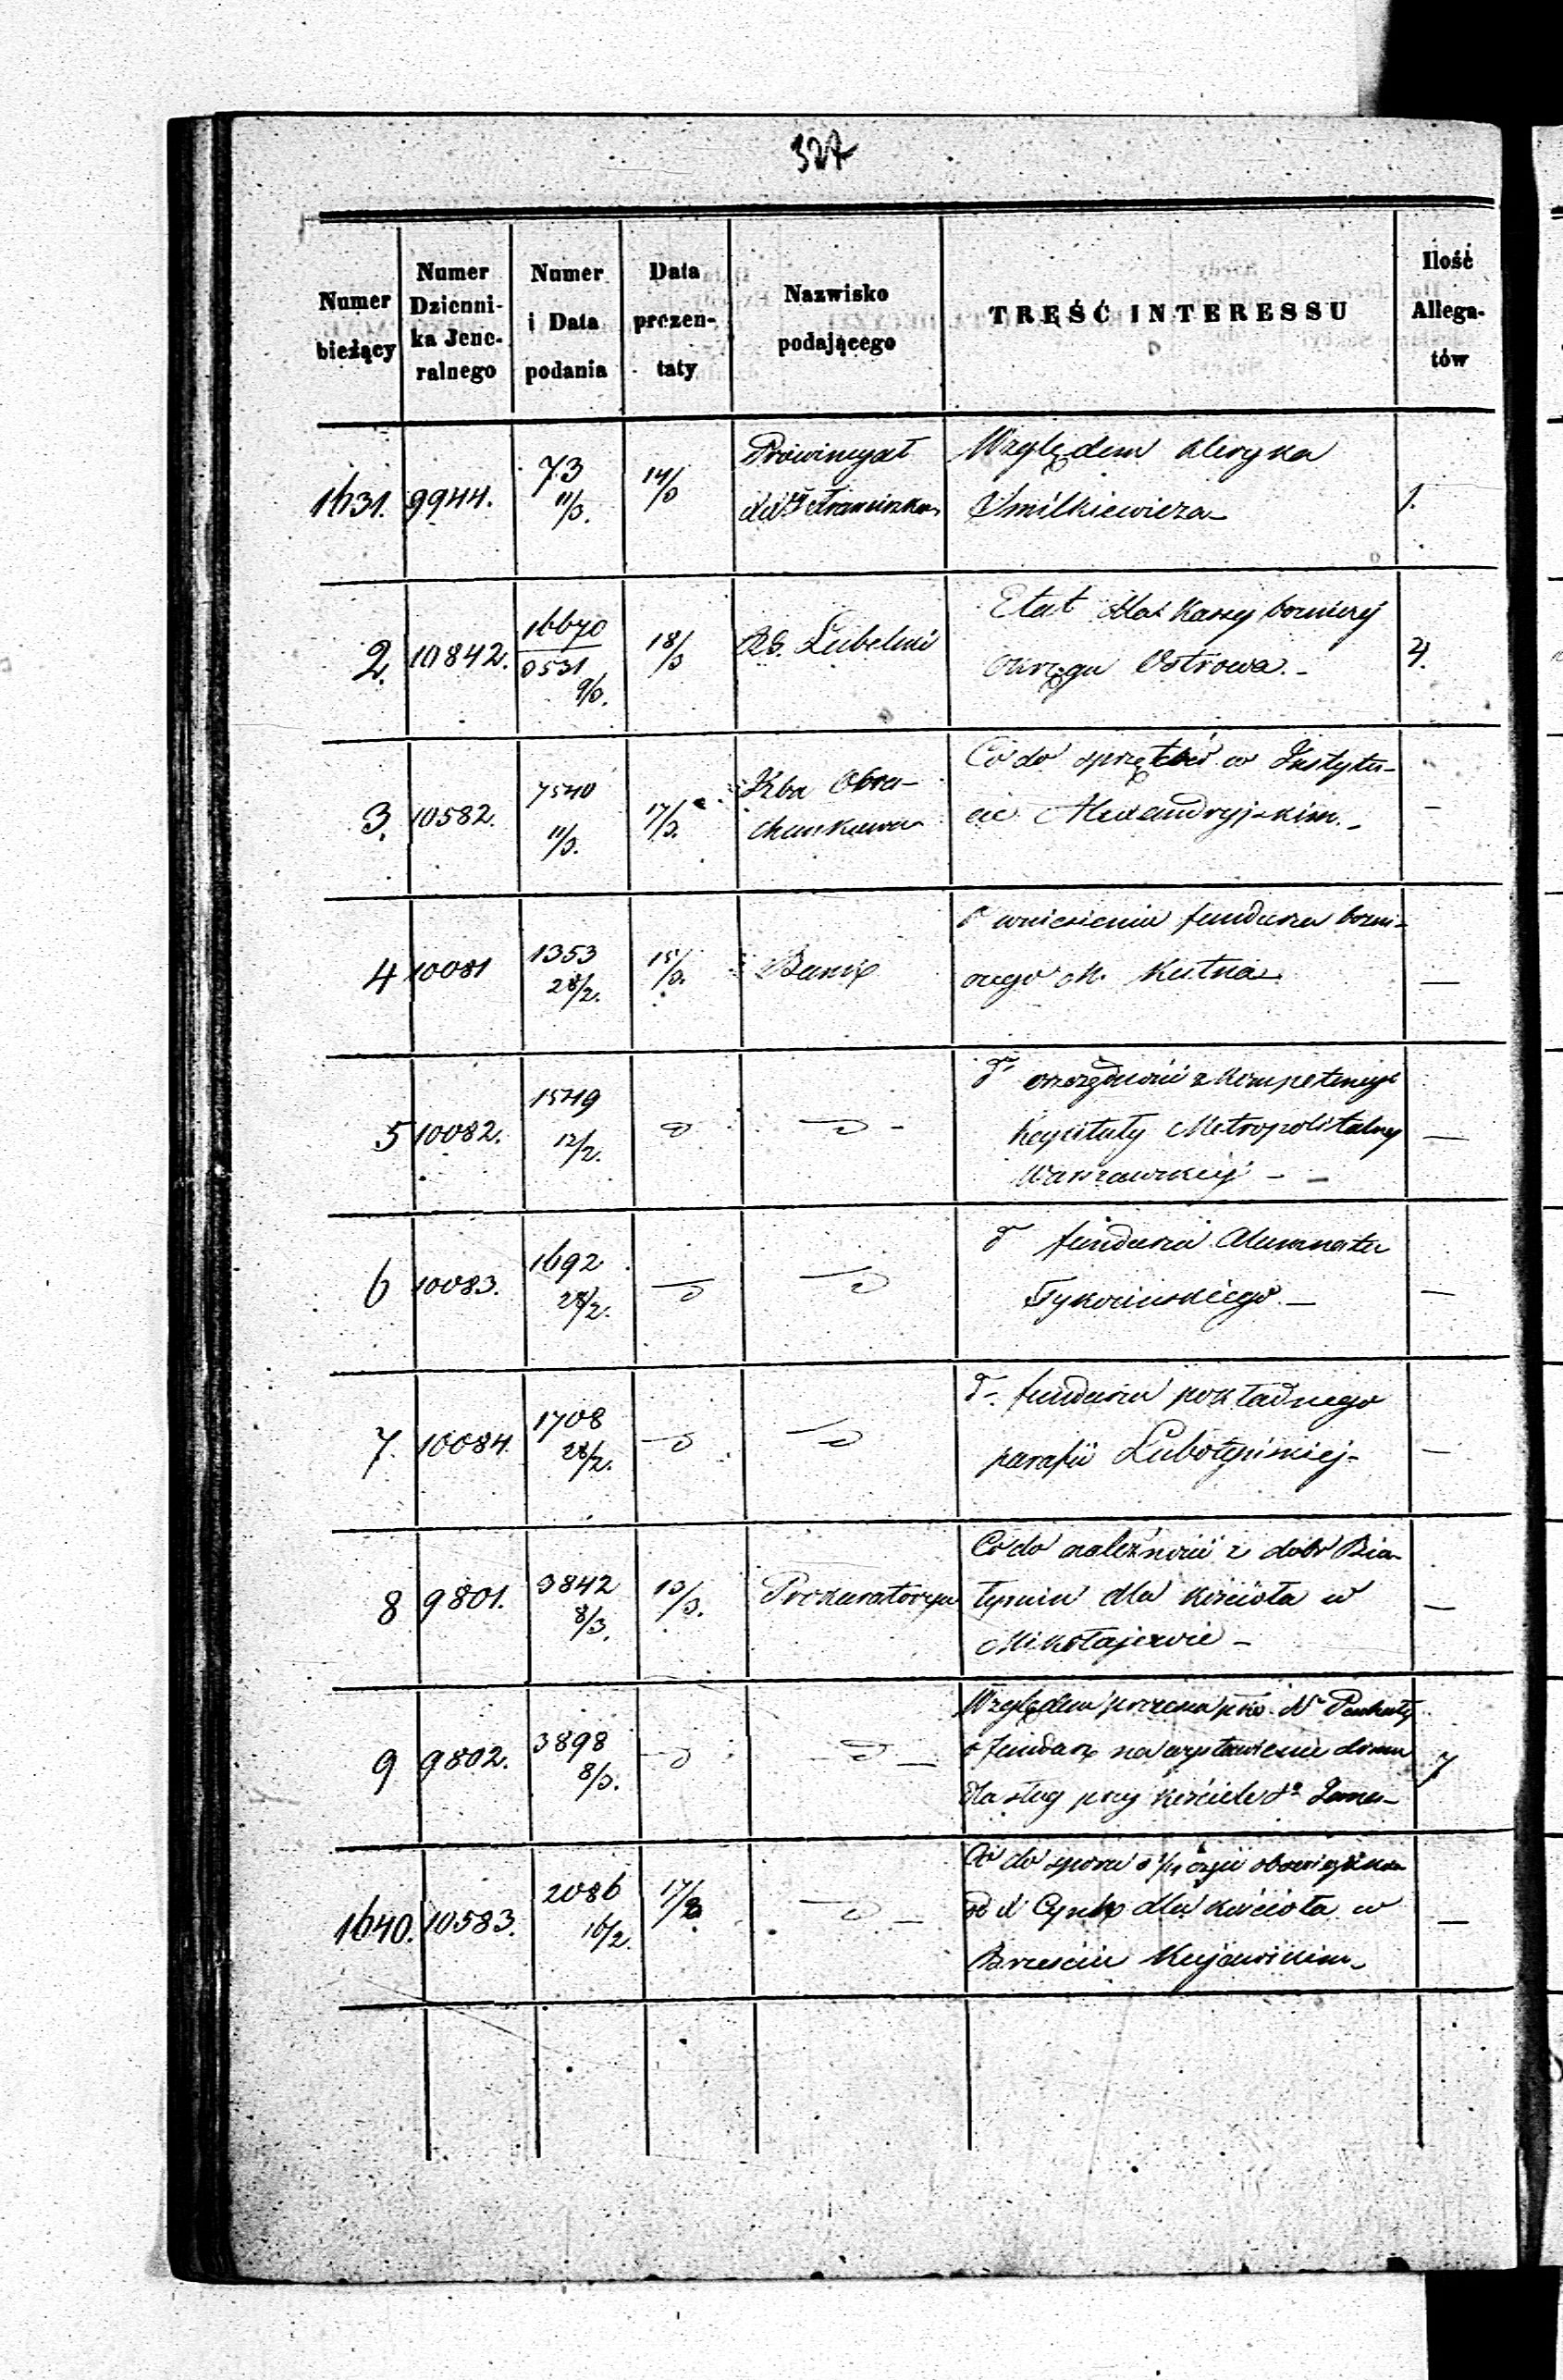 327
Numer bieżący
Numer Dzienni-ka Jene-ralnego
Numer i Data podania
Data prezen-taty
Nazwisko podającego
TREŚĆ INTERESSU
Ilość Allega-tów
1631. 9944. 73 11/3. 14/3 Prowincyał Względem kleryka
Smilkiewicza 1.
2. 10842. 16670 / 3531 9/3. 18/3 RG. Lubelski Etat dla Kassy bożniczej
Okręgu Ostrowa. 4.
3. 10582. 7540 11/3. 17/3. Izba Obra-
chunkowa
Co do sprzętów w Instytu-
cie Alexandryjskim. –
4 10081 1353 28/2. 15/3. Bank O wniesieniu funduszu bożni-
czego M. Kutna –
5 10082. 1549 12/2. d d – d oszczędności z kompetencyi
Kapituły Metropolitalnej
Warszawskiej – –
6 10083. 1692 28/2. d d d funduszu Alumnatu
Tykocińskiego. – –
7. 10084. 1708 28/2. d d d funduszu pokładnego
parafii –
8 9801. 3842 8/3. 13/3. Prokuratorya Co do należności z dóbr Bia-
łynin dla kościoła w
Mikołajewie – –
9 9802. 3898 8/3. d d – Względem
o fundusz na wystawienie domu
dla sług przy kościele Sgo Jana – 7
1640. 10583. 2086 16/2. 17/3 d – Co do sporu o 1/4 części obowiązku
dla kościoła w
Brześciu Kujawskim – –